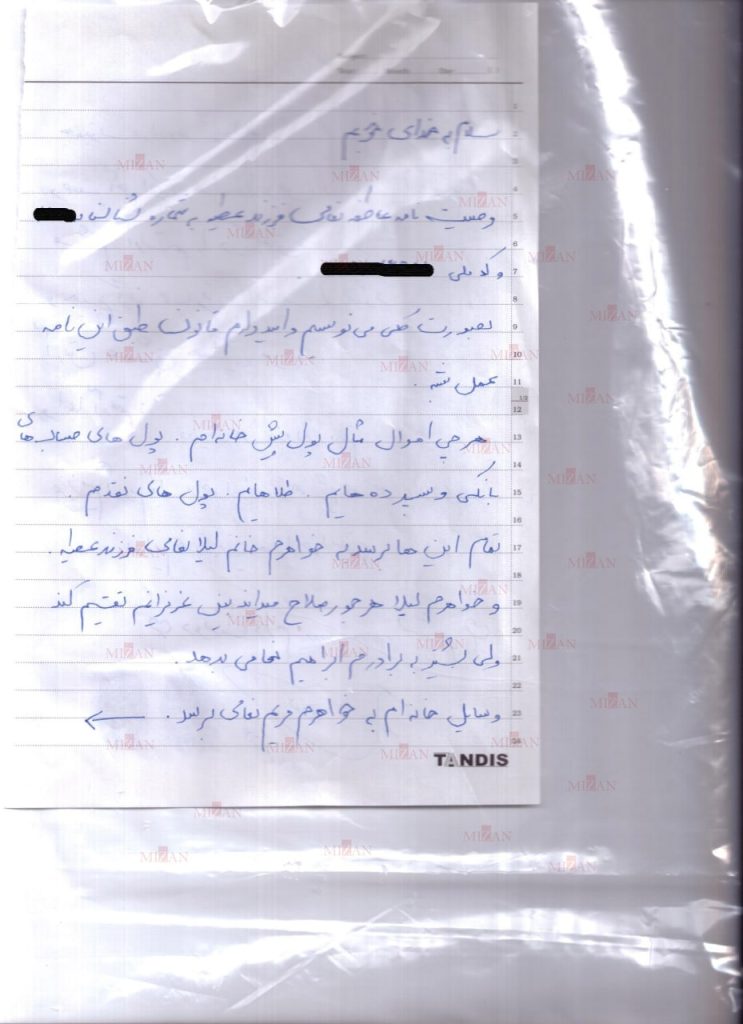 سلام به خدای خوبم
وصیت نامه عاطفه نعامی فرزند عطیه به شماره شناسنامه
و کد ملی
بصورت کلی می نویسم و امیدوارم قانون طبق این نامه
عمل کنه.
هر چی اموال مثال پول پیش خانه‌ام. پول های حساب‌های
بانکی و سپرده هایم. طلاهایم. پول های نقدم.
تمام این ها برسد به خواهرم خانم لیلا نعامی فرزند عطیه.
و خواهرم لیلا هر جور صلاح میداند بین عزیزانم تقسیم کند
ولی بیشتر به برادرم ابراهیم نعامی بدهد.
وسایل خانه ام به خواهرم مریم نعامی برسد.
TANDIS
MIZAN